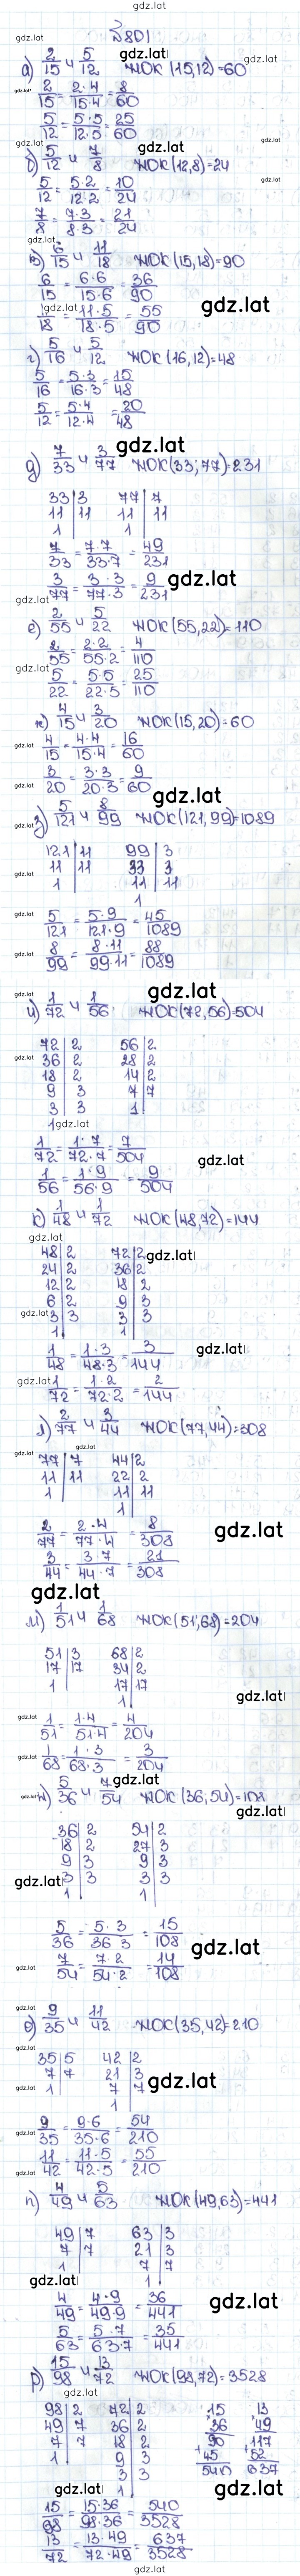 gdz.lat
№801
gdz.lat gdz.lat gdz.lat
а) 2/15 и 5/12 НОК (15,12)=60
2/15 = 2·4/15·4 = 8/60
5/12 = 5·5/12·5 = 25/60
gdz.lat gdz.lat
б) 5/12 и 7/8 НОК (12,8)=24
5/12 = 5·2/12·2 = 10/24
7/8 = 7·3/8·3 = 21/24
gdz.lat
в) 6/15 и 11/18 НОК (15,18)=90
6/15 = 6·6/15·6 = 36/90
gdz.lat gdz.lat
11/18 = 11·5/18·5 = 55/90
г) 5/16 и 5/12 НОК (16,12)=48
5/16 = 5·3/16·3 = 15/48
5/12 = 5·4/12·4 = 20/48
gdz.lat
д) 7/33 и 3/77 НОК (33;77)=231
33|3 77|7
11|11 11|11
1 1
7/33 = 7·7/33·7 = 49/231
3/77 = 3·3/77·3 = 9/231
gdz.lat gdz.lat
е) 2/55 и 5/22 НОК (55,22)=110
2/55 = 2·2/55·2 = 4/110
gdz.lat
5/22 = 5·5/22·5 = 25/110
ж) 4/15 и 3/20 НОК (15,20)=60
gdz.lat
4/15 = 4·4/15·4 = 16/60
3/20 = 3·3/20·3 = 9/60
gdz.lat gdz.lat
з) 5/121 и 8/99 НОК (121,99)=1089
121|11 99|3
11|11 33|3
1 11|11
1
5/121 = 5·9/121·9 = 45/1089
8/99 = 8·11/99·11 = 88/1089
gdz.lat
и) 1/72 и 1/56 НОК (72,56)=504
72|2 56|2
36|2 28|2
18|2 14|2
9|3 7|7
3|3 1
1
gdz.lat
1/72 = 1·7/72·7 = 7/504
1/56 = 1·9/56·9 = 9/504
gdz.lat
к) 1/48 и 1/72 НОК (48,72)=144
gdz.lat
48|2 72|2
24|2 36|2
12|2 18|2
6|2 9|3
3|3 3|3
1 1
1/48 = 1·3/48·3 = 3/144
1/72 = 1·2/72·2 = 2/144
gdz.lat
л) 2/77 и 3/44 НОК (77,44)=308
77|7 44|2
11|11 22|2
1 11|11
1
2/77 = 2·4/77·4 = 8/308
3/44 = 3·7/44·7 = 21/308
gdz.lat
м) 1/51 и 1/68 НОК (51,68)=204
51|3 68|2
17|17 34|2
1 17|17
1
1/51 = 1·4/51·4 = 4/204
1/68 = 1·3/68·3 = 3/204
gdz.lat
н) 5/36 и 7/54 НОК (36,54)=108
36|2 54|2
18|2 27|3
9|3 9|3
3|3 3|3
1 1
gdz.lat
5/36 = 5·3/36·3 = 15/108
7/54 = 7·2/54·2 = 14/108
gdz.lat
о) 9/35 и 11/42 НОК (35,42)=210
35|5 42|2
7|7 21|3
1 7|7
1
gdz.lat
9/35 = 9·6/35·6 = 54/210
11/42 = 11·5/42·5 = 55/210
п) 4/49 и 5/63 НОК (49,63)=441
49|7 63|3
7|7 21|3
1 7|7
1
gdz.lat
4/49 = 4·9/49·9 = 36/441
5/63 = 5·7/63·7 = 35/441
gdz.lat
р) 15/98 и 13/72 НОК (98,72)=3528
gdz.lat
98|2 72|2 15 13
49|7 36|2 36 49
7|7 18|2 90 117
1 9|3 45 52
3|3 540 637
1
gdz.lat gdz.lat
15/98 = 15·36/98·36 = 540/3528
13/72 = 13·49/72·49 = 637/3528
gdz.lat